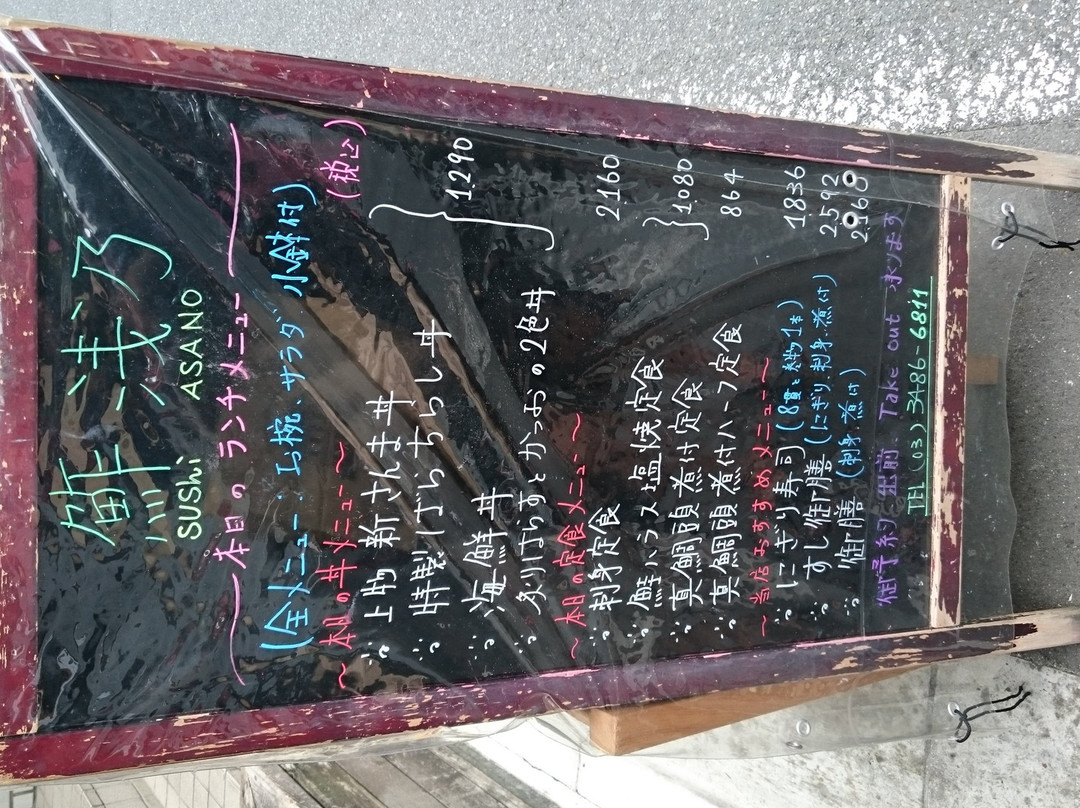 鮓 浅乃
SUShi ASANO
本日のランチメニュー
(全メニュー:お椀、サラダ、小鉢付)
~本日の丼メニュー~ (税込)
上物 新さんま丼
特製ばらちらし丼
海鮮丼
炙りはらすとかつおの2色丼
1.290
~本日の定食メニュー~
刺身定食 2160
鮭ハラス塩焼定食
真鯛頭煮付定食
1.080
真鯛頭煮付ハーフ定食 864
~当店おすすめメニュー~
にぎり寿司(8貫と巻物1本) 1836
すし御膳(にぎり.刺身.煮付) 2592
御膳(刺身.煮付) 2160
御予約 出前 Take out 承ります
TEL (03) 3486-6811